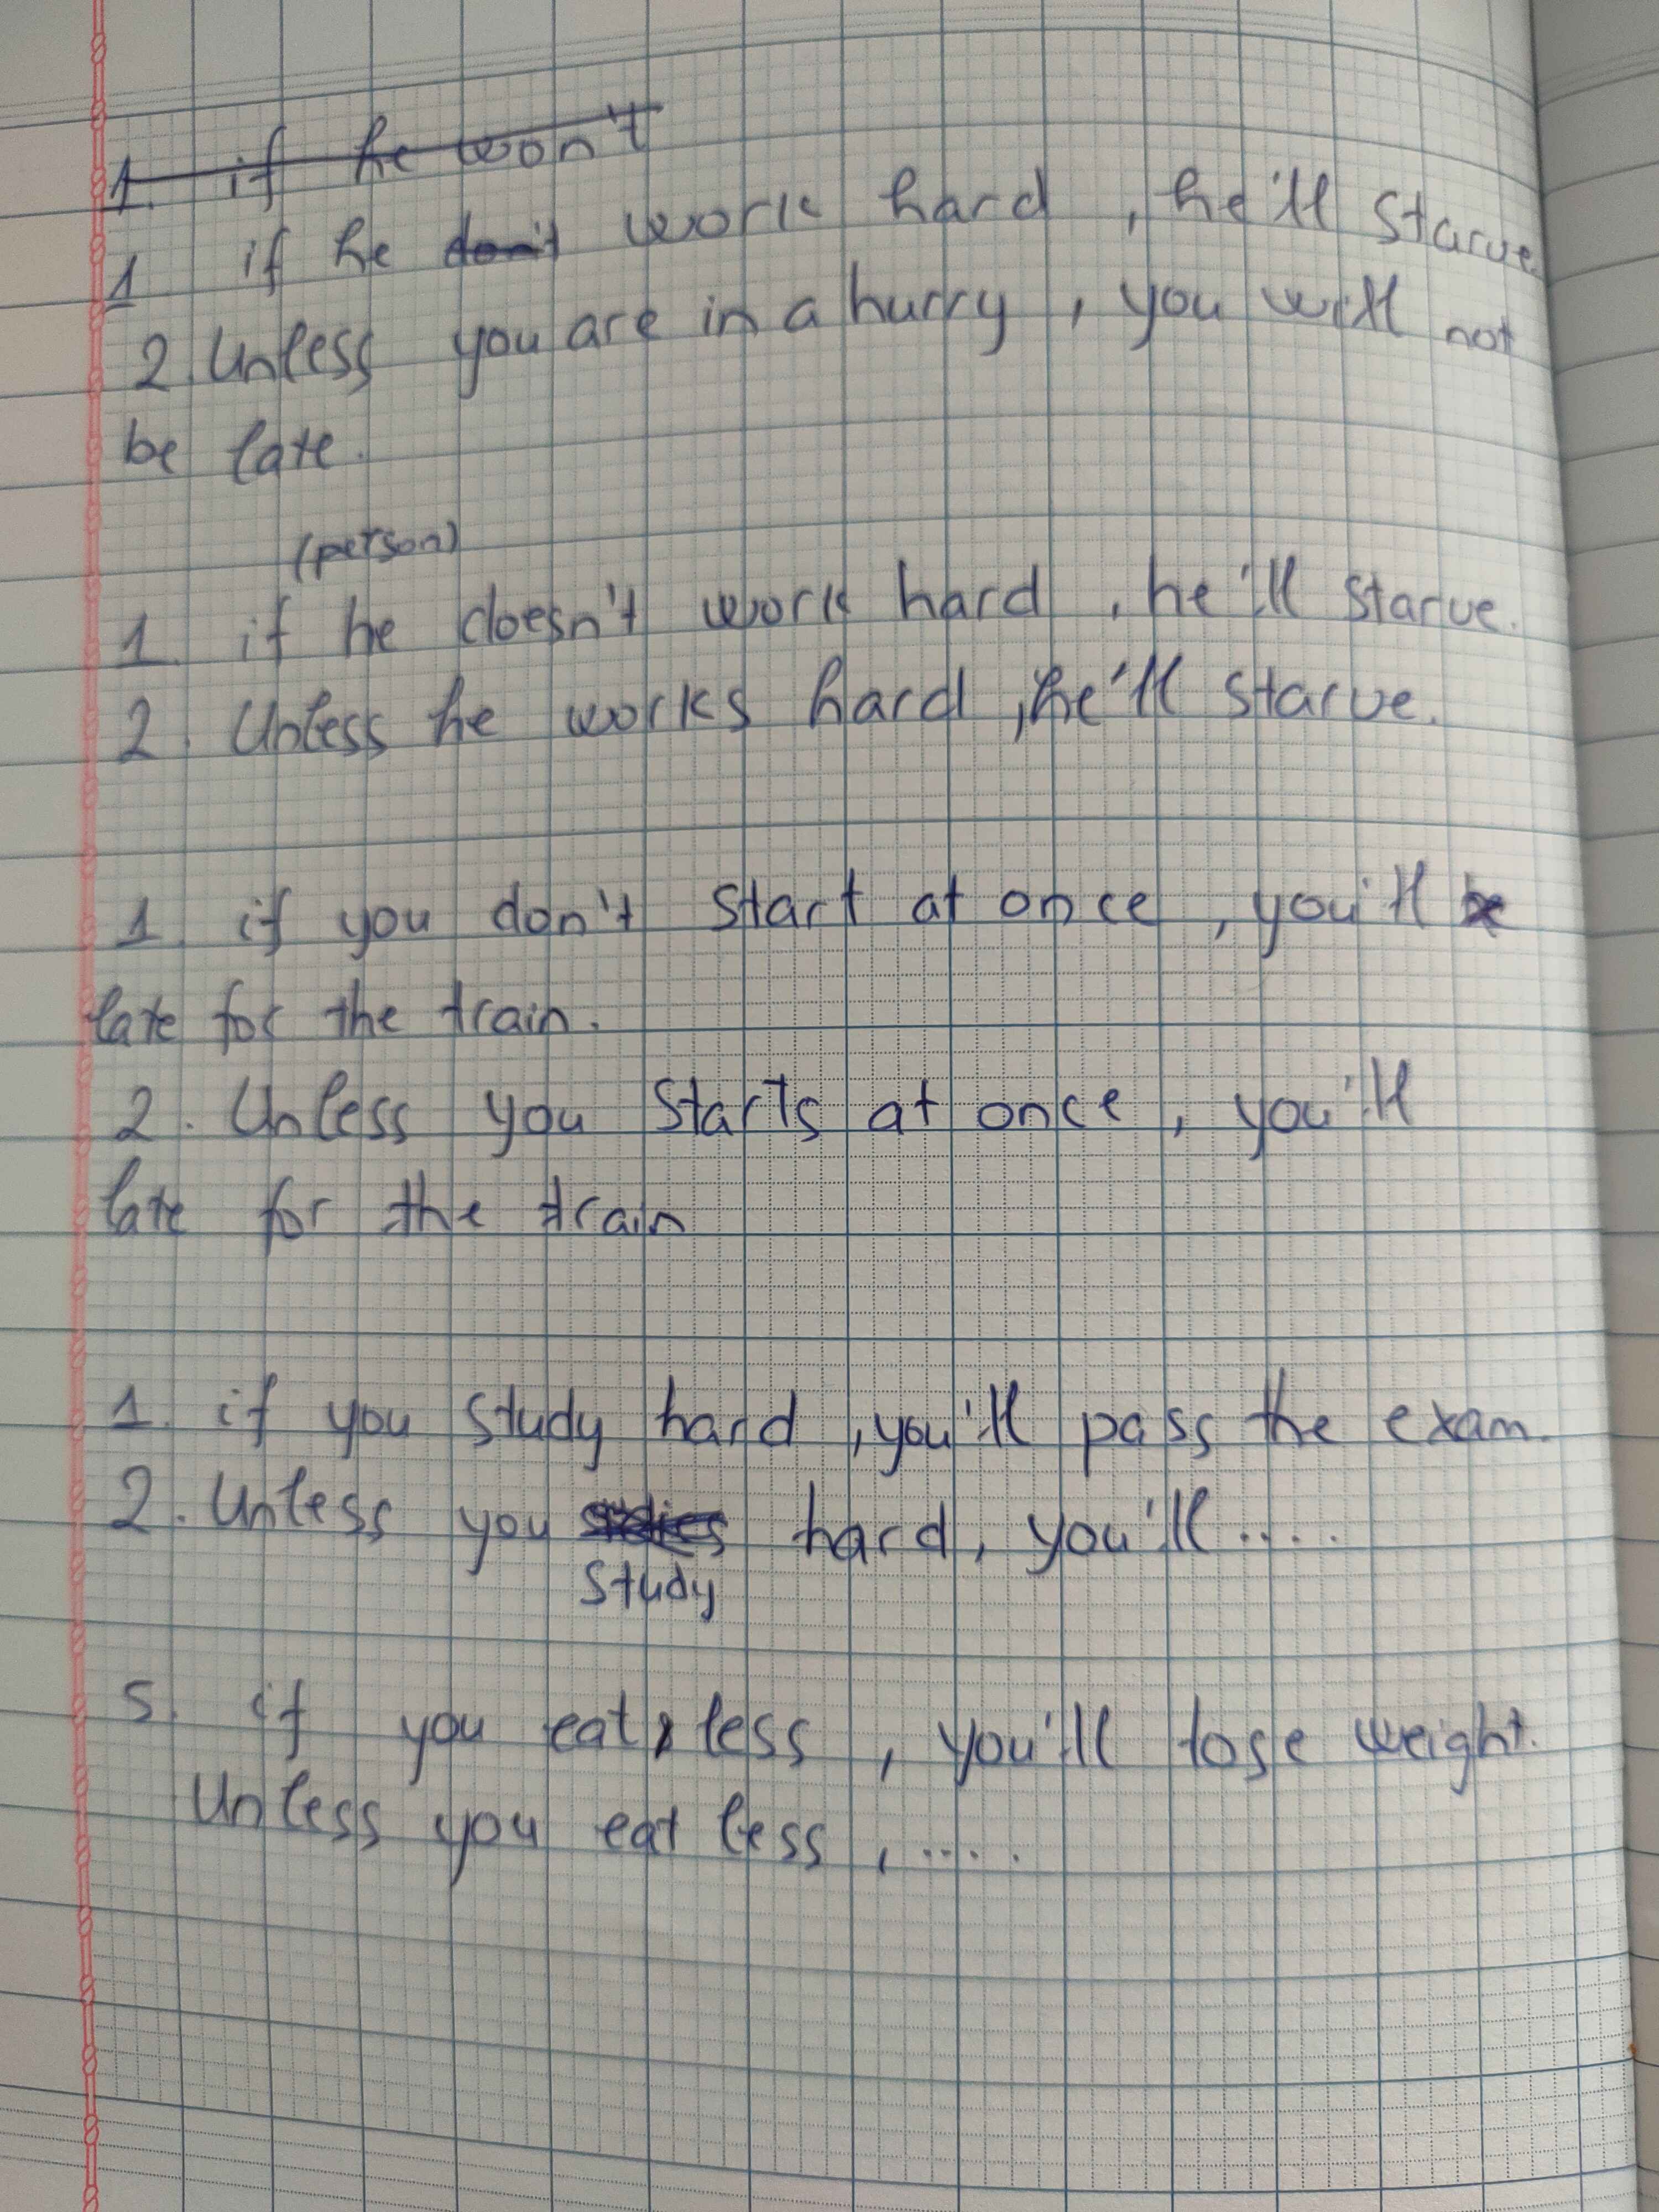 1. if he won't
1 if he don't work hard, he'll starve.
2 Unless you are in a hurry, you will not
be late.
(person)
1. if he doesn't work hard, he'll starve.
2. Unless he works hard, he'll starve.
1 if you don't start at once, you'll
late for the train.
2. Unless you starts at once, you'll
late for the train
1. if you study hard, you'll pass the exam.
2. Unless you studies hard, you'll.....
study
5. if you eat less, you'll lose weight.
Unless you eat less, .....